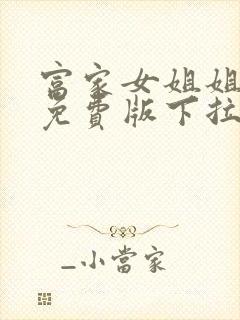 富家女姐姐
免費版下拉
_小當家